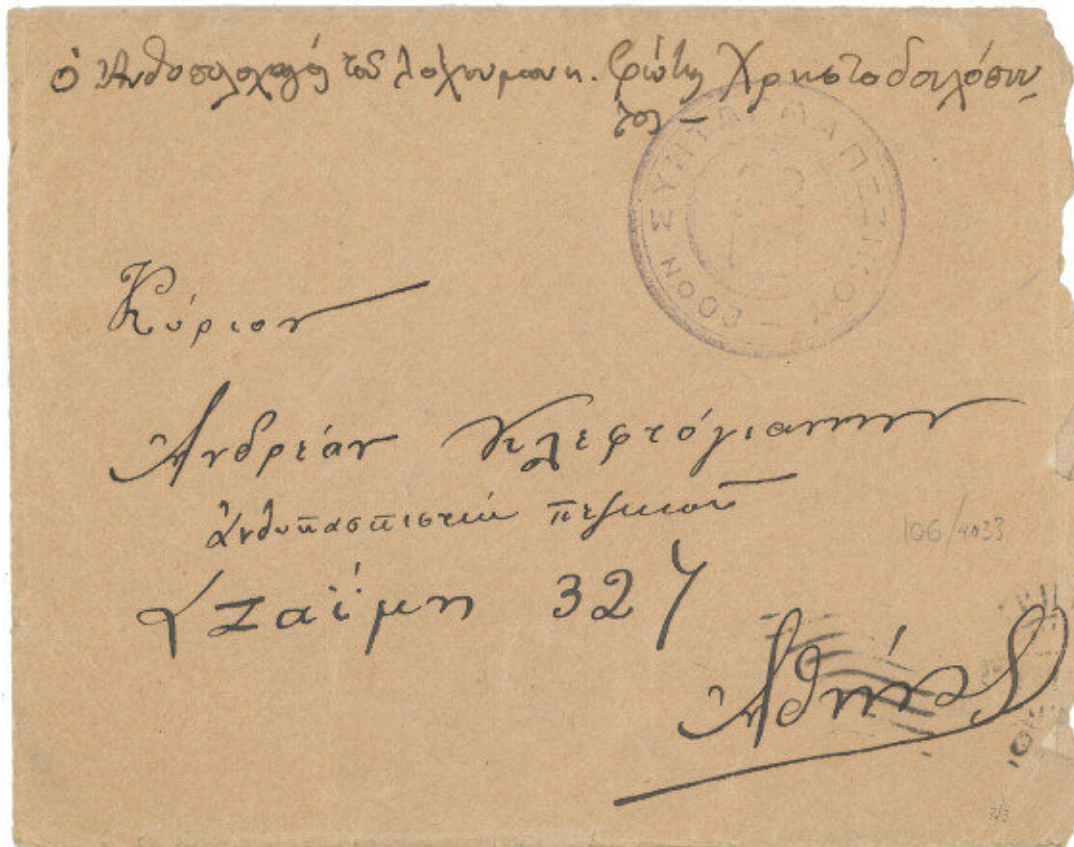 ὁ Ἀνθυπολοχαγός τοῦ λόχου Φώτης Χρηστοδουλόπου
λος –
2ΟΟΝ ΣΥΝΤΑΓΜΑ ΠΕΖΙΚΟΥ
Κύριον
Ἀνδρέαν Κλεφτόγιαννην
ἀνθυπασπιστήν πεζικοῦ
Ζαΐμη 32
106/4033
Ἀθήνας